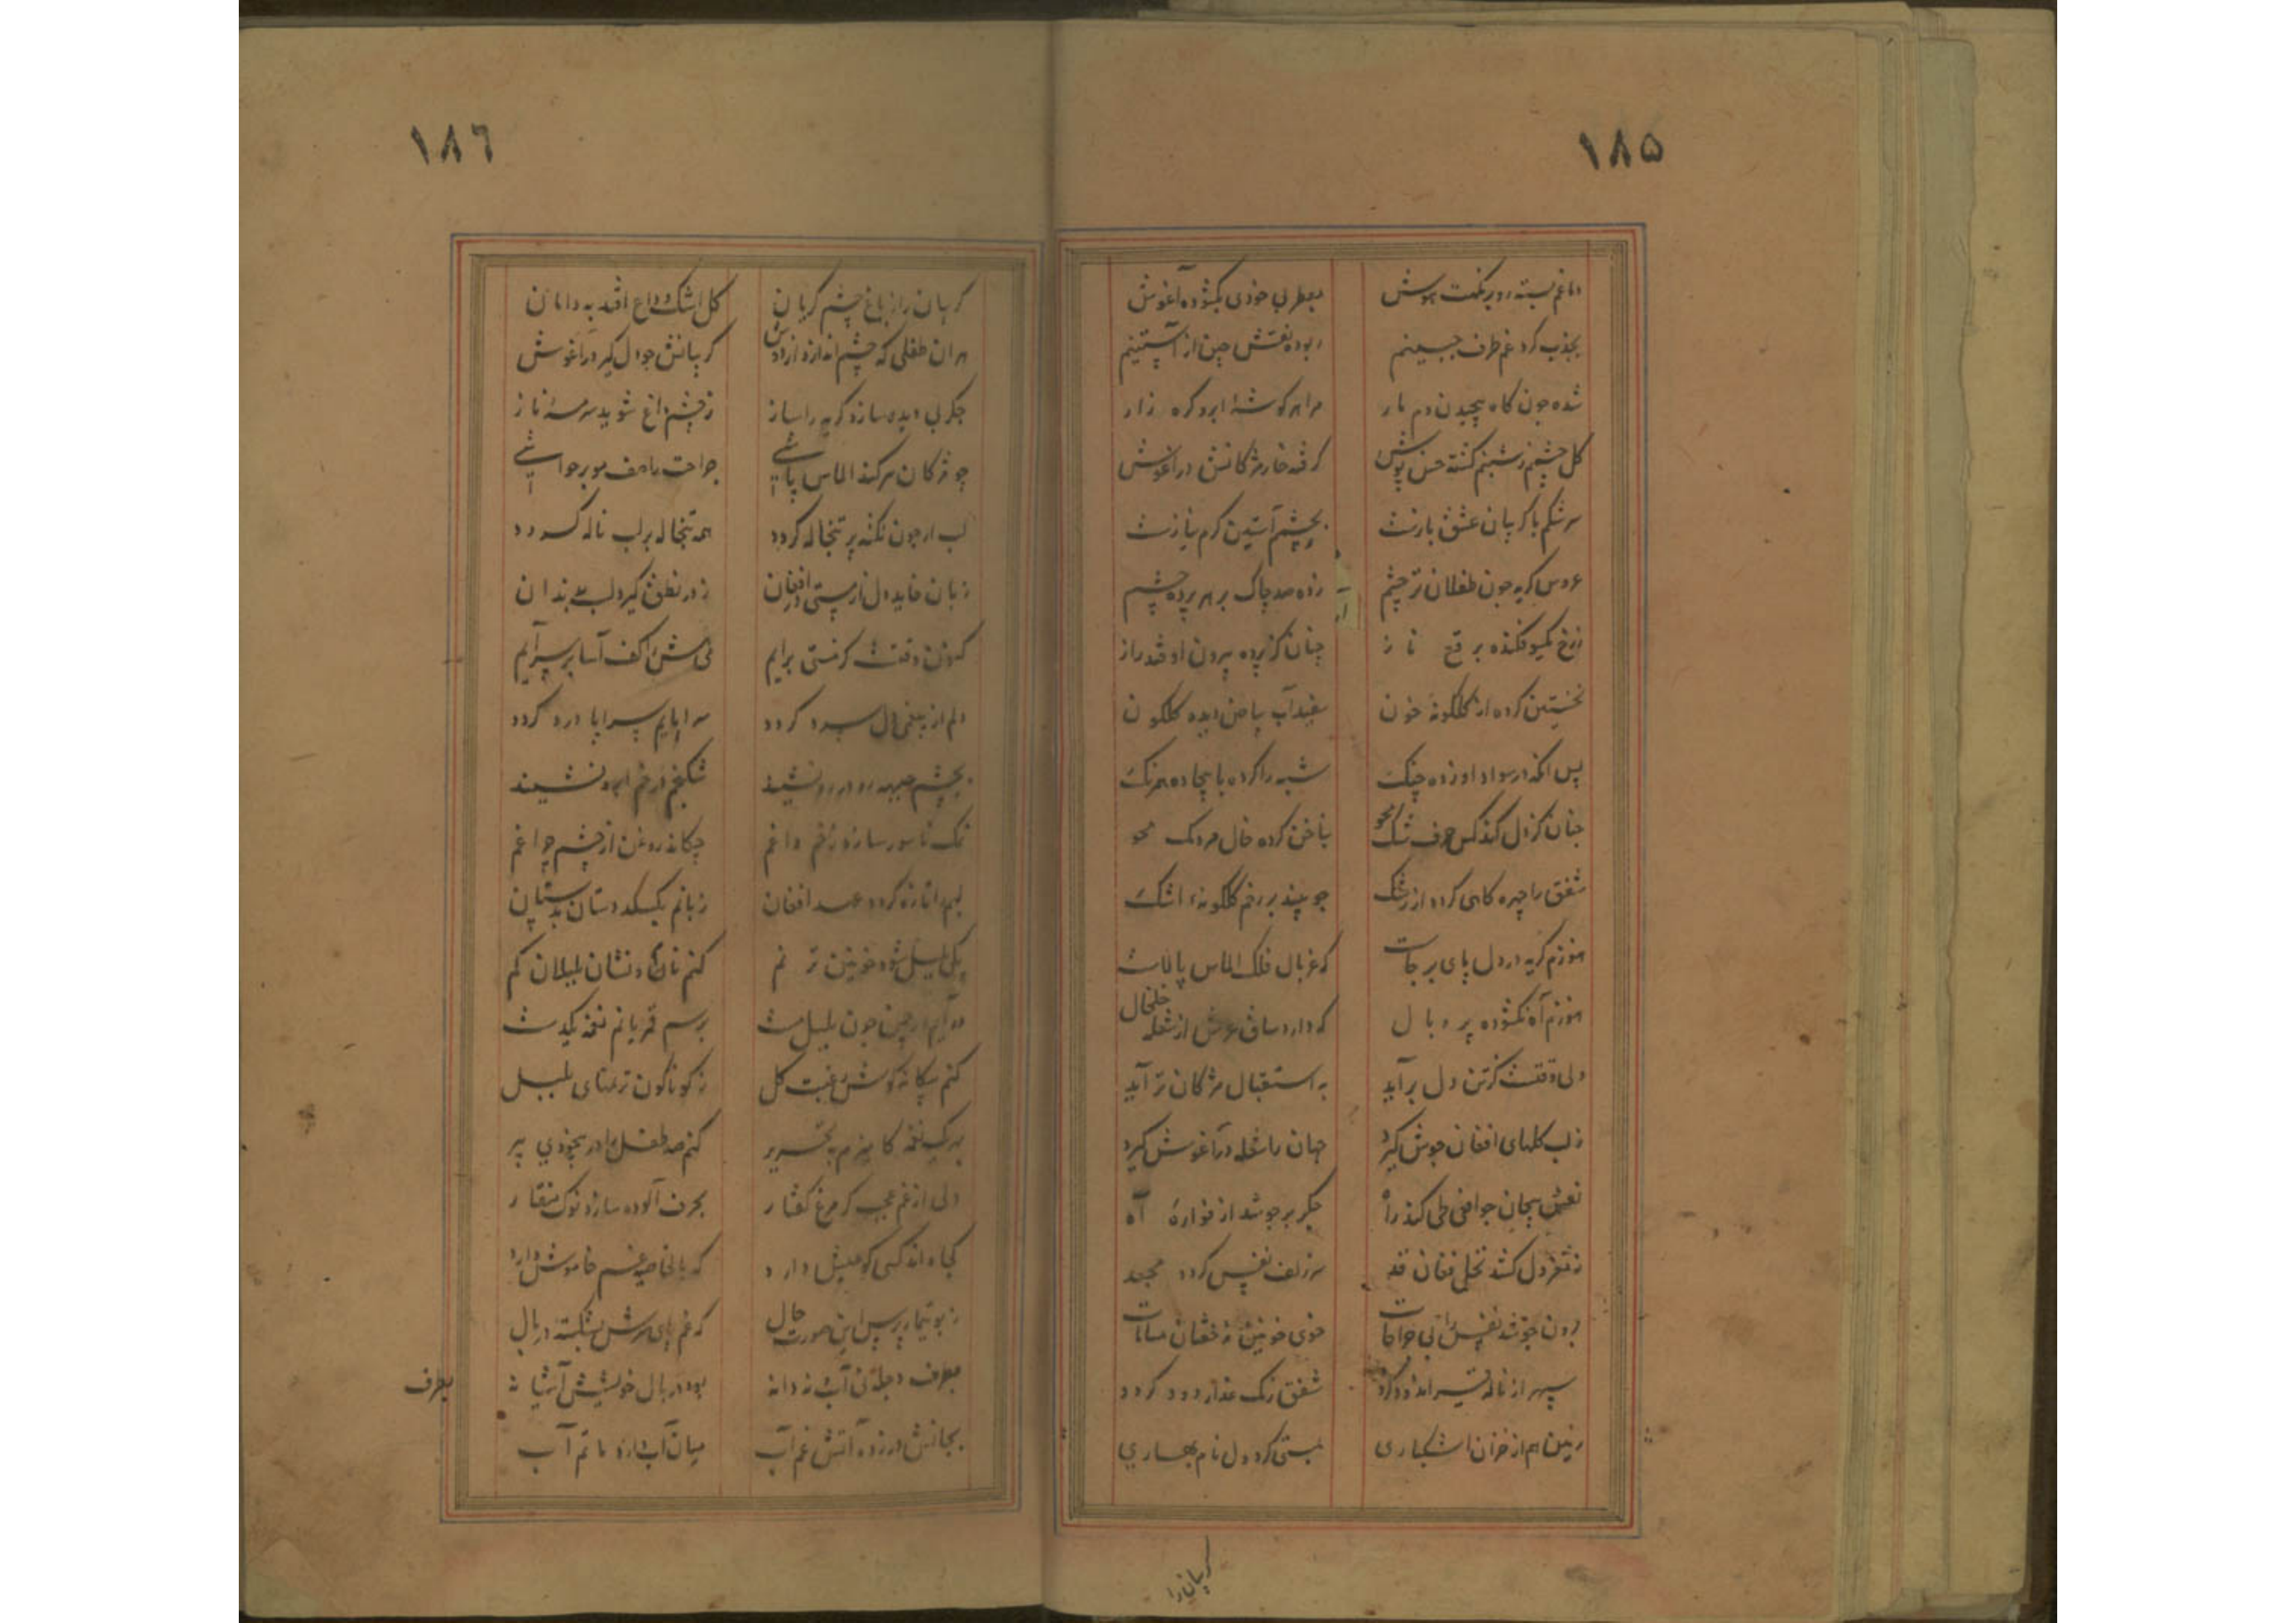 ١٨٥
دماغم بسته در بر نکهت هوش بعطر بی خودی بکشوده آغوش
بجذب کرد غم طرف جبینم ربوده نقش چین از آستینم
شده چون کاه پیچیدن دم مار مرا هر کوشهٔ ابرو کره زار
کل چشمم ز شبنم کشته خس پوش کرفته خار مژکانش در آغوش
سرشکم با کریبان عشق بازست بچشم آستین کرم نیازست
عروس کریه چون طفلان تر چشم زده صد چاک بر هر پرده چشم
ز رخ یکسو فکنده برقع ناز چنان کز پرده بیرون اوفتد راز
نخستین کرده از کلکونهٔ خون سفیدآب بیاض دیده کلکون
پس انکه در سواد او زده چنک شبه را کرده با بیجاده همرنک
چنان کز دل کند کس حرف شک محو بناخن کرده خال مردمک محو
شفق را چهره کاهی کردد از رشک چو بیند بر رخم کلکونهٔ اشک
هنوزم کریه در دل پای برجاست که غربال فلک الماس پالاست
هنوزم آه نکشوده پر و بال که دارد ساق عرش از شعله خلخال
ولی وقتست کز تن دل برآید به استقبال مژکان تر آید
ز لب کلهای افغان جوش کیرد جهان را شعله در آغوش کیرد
نفس پیچان چو افعی طی کند راه جکر بر جوشد از فوارهٔ آه
ز مغز دل کشد نخل فغان قد سر زلف نفس کردد مجعد
برون جوشد نفس آبی جراحات خوی خونین فشان مسامات
سپهر از ناله قیر اندود کردد شفق رنک عذار دود کردد
زمین هم از خزان اشکباری بستی کردد دل نام بهاری
کریبان را
١٨٦
کریبان را ز باغ چشم کریان کل اشک وداع افتد به دامان
هر ان طفلی که چشم اندازد از دوش کریبانش چو دل کیرد در آغوش
جکر بی دیده سازد کریه را ساز ز چشم داغ شوید سرمهٔ ناز
چو مژکان سر کند الماس پاشی جراحت را دهد مو بر حواشی
لب ار چون نکته پر تبخاله کردد همه تبخاله بر لب ناله کردد
زبان خاید دل از مستی در افغان ز در نطق کیرد لب بدندان
کنون وقتست کز مستی برآیم کف آسا بر سر آیم
دلم از بیغمی دل سرد کردد سراپایم سراپا درد کردد
بچشم جبهه رو در رو نشیند شکنجم در خم ابرو نشیند
نمک ناسور سازد زخم داغم چکاند روغن از چشم چراغم
لبم را تازه کردد عهد افغان زبانم بکسلد دستان بدستان
یکی بلبل شود خونین ترنم کنم نام و نشان بلبلان کم
در آیم در چمن چون بلبل مست برسم قمریانم نغمه یکدست
کنم بیکانه کوش رغبت کل ز کوناکون ترنمهای بلبل
بهر یک نغمه کارم به تحریر کنم صد طفل را در بیخودی پیر
ولی از غم عجب کر مرغ کفتار بحرف آلوده سازد نوک منقار
کجا داند کسی کو عیش دارد که بالخاصیه غم خاموش دارد
ز بوتیمار پرس این صورت حال که غم پای سرش بشکسته در بال
بطرف دجلهٔ آب نه دانه بود در بال خویشش آشیانه
بجانش در زده آتش غم آب میان آب دارد ماتم آب
بطرف